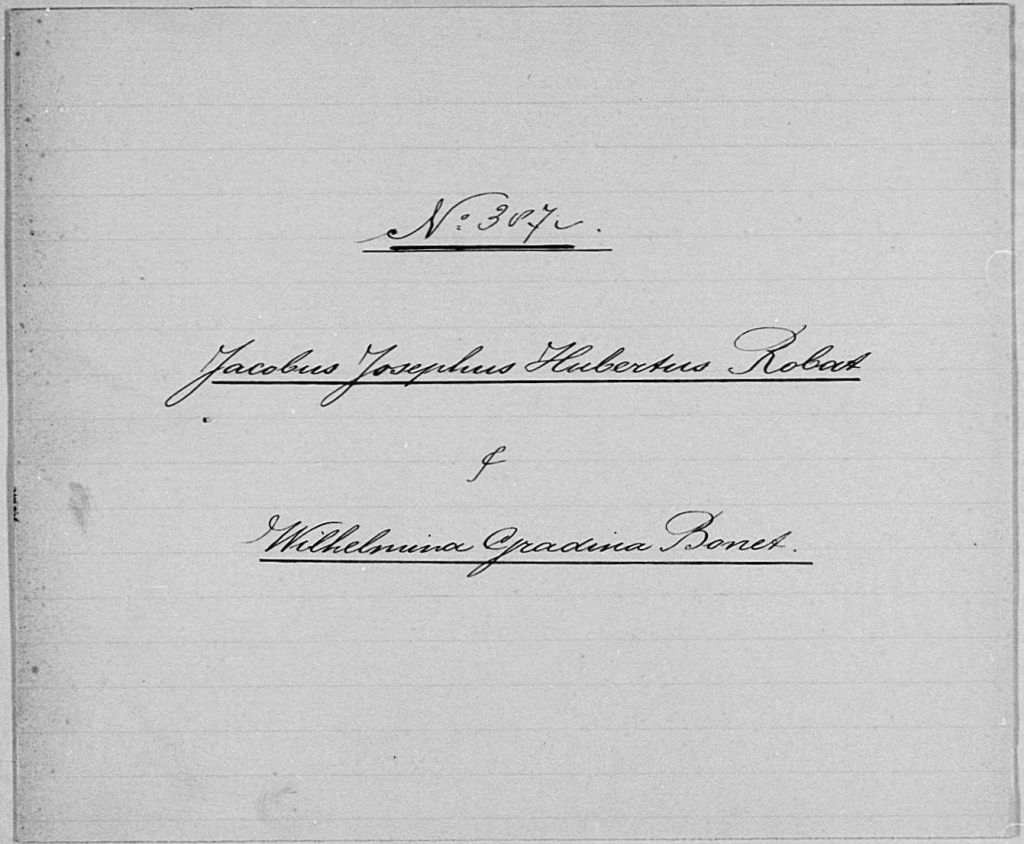 No. 387.
Jacobus Josephus Hubertus Robat
&
Wilhelmina Gradina Bonet.